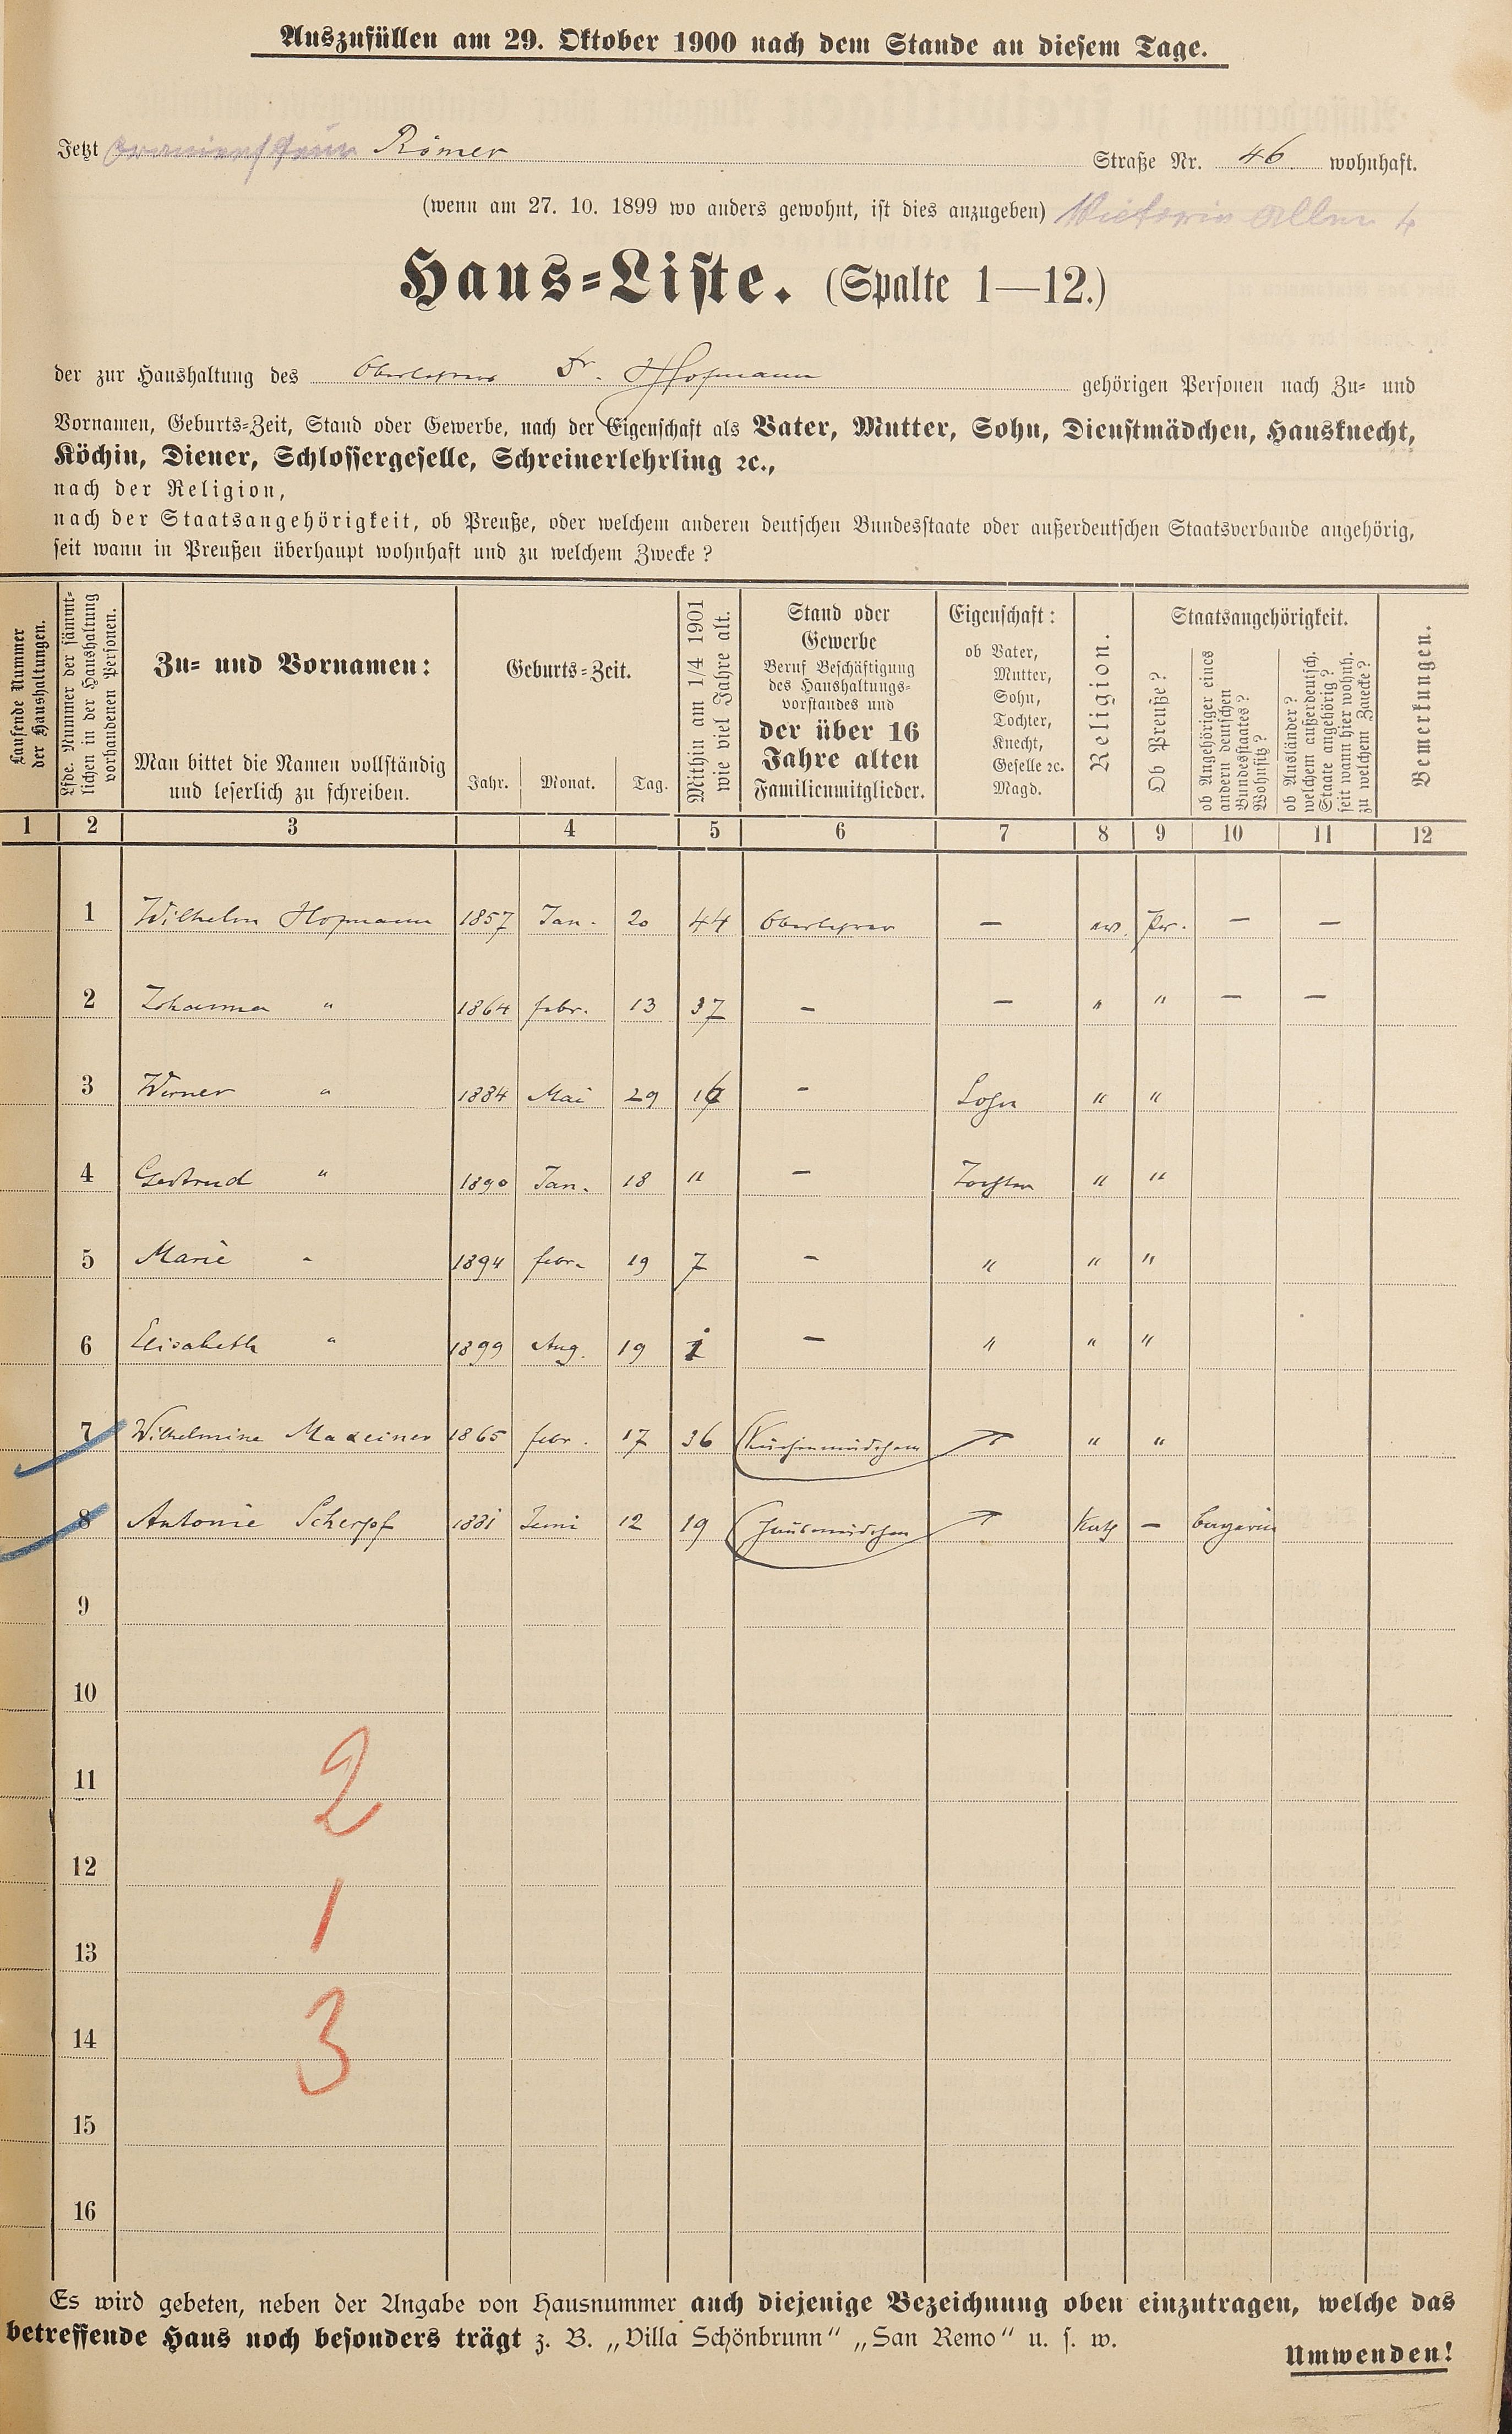 Auszufüllen am 29. Oktober 1900 nach dem Stande an diesem Tage.
Jetzt Römer Straße Nr. 46 wohnhaft.
(wenn am 27. 10. 1899 wo anders gewohnt, ist dies anzugeben) Victoria Allee 4
Haus-Liste. (Spalte 1—12.)
der zur Haushaltung des Oberlehrers Dr. Hofmann gehörigen Personen nach Zu- und
Vornamen, Geburts-Zeit, Stand oder Gewerbe, nach der Eigenschaft als Vater, Mutter, Sohn, Dienstmädchen, Hausknecht,
Köchin, Diener, Schlossergeselle, Schreinerlehrling ꝛc.,
nach der Religion,
nach der Staatsangehörigkeit, ob Preuße, oder welchem anderen deutschen Bundesstaate oder außerdeutschen Staatsverbande angehörig,
seit wann in Preußen überhaupt wohnhaft und zu welchem Zwecke?
Laufende Nummer
der Haushaltungen.
Lfde. Nummer der sämmt-
lichen in der Haushaltung
vorhandenen Personen.
Zu- und Vornamen:
Man bittet die Namen vollständig
und leserlich zu schreiben.
Geburts-Zeit.
Jahr. Monat. Tag.
Mithin am 1/4 1901
wie viel Jahre alt.
Stand oder
Gewerbe
Beruf Beschäftigung
des Haushaltungs-
vorstandes und
der über 16
Jahre alten
Familienmitglieder.
Eigenschaft:
ob Vater,
Mutter,
Sohn,
Tochter,
Knecht,
Geselle ꝛc.
Magd.
Religion.
Staatsangehörigkeit.
Ob Preuße?
ob Angehöriger eines
andern deutschen
Bundesstaates?
Wohnsitz?
ob Ausländer?
welchem außerdeutsch.
Staate angehörig?
seit wann hier wohnh.
zu welchem Zwecke?
Bemerkungen.
1 2 3 4 5 6 7 8 9 10 11 12
1 Wilhelm Hofmann 1857 Jan. 20 44 Oberlehrer — ev. Pr. — —
2 Johanna " 1864 febr. 13 37 — — " " — —
3 Werner " 1884 Mai 29 16 — Sohn " "
4 Gertrud " 1890 Jan. 18 " — Tochter " "
5 Marie " 1894 febr. 19 7 — " " "
6 Elisabeth " 1899 Aug. 19 1 — " " "
7 Wilhelmine 1865 febr. 17 36 Küchenmädchen " "
8 Antonie Scherpf 1881 Juni 12 19 Hausmädchen Kath — Bayerin
9
10
11
2
12
1
13
14
3
15
16
Es wird gebeten, neben der Angabe von Hausnummer auch diejenige Bezeichnung oben einzutragen, welche das
betreffende Haus noch besonders trägt z. B. „Villa Schönbrunn“ „San Remo“ u. s. w.
Umwenden!